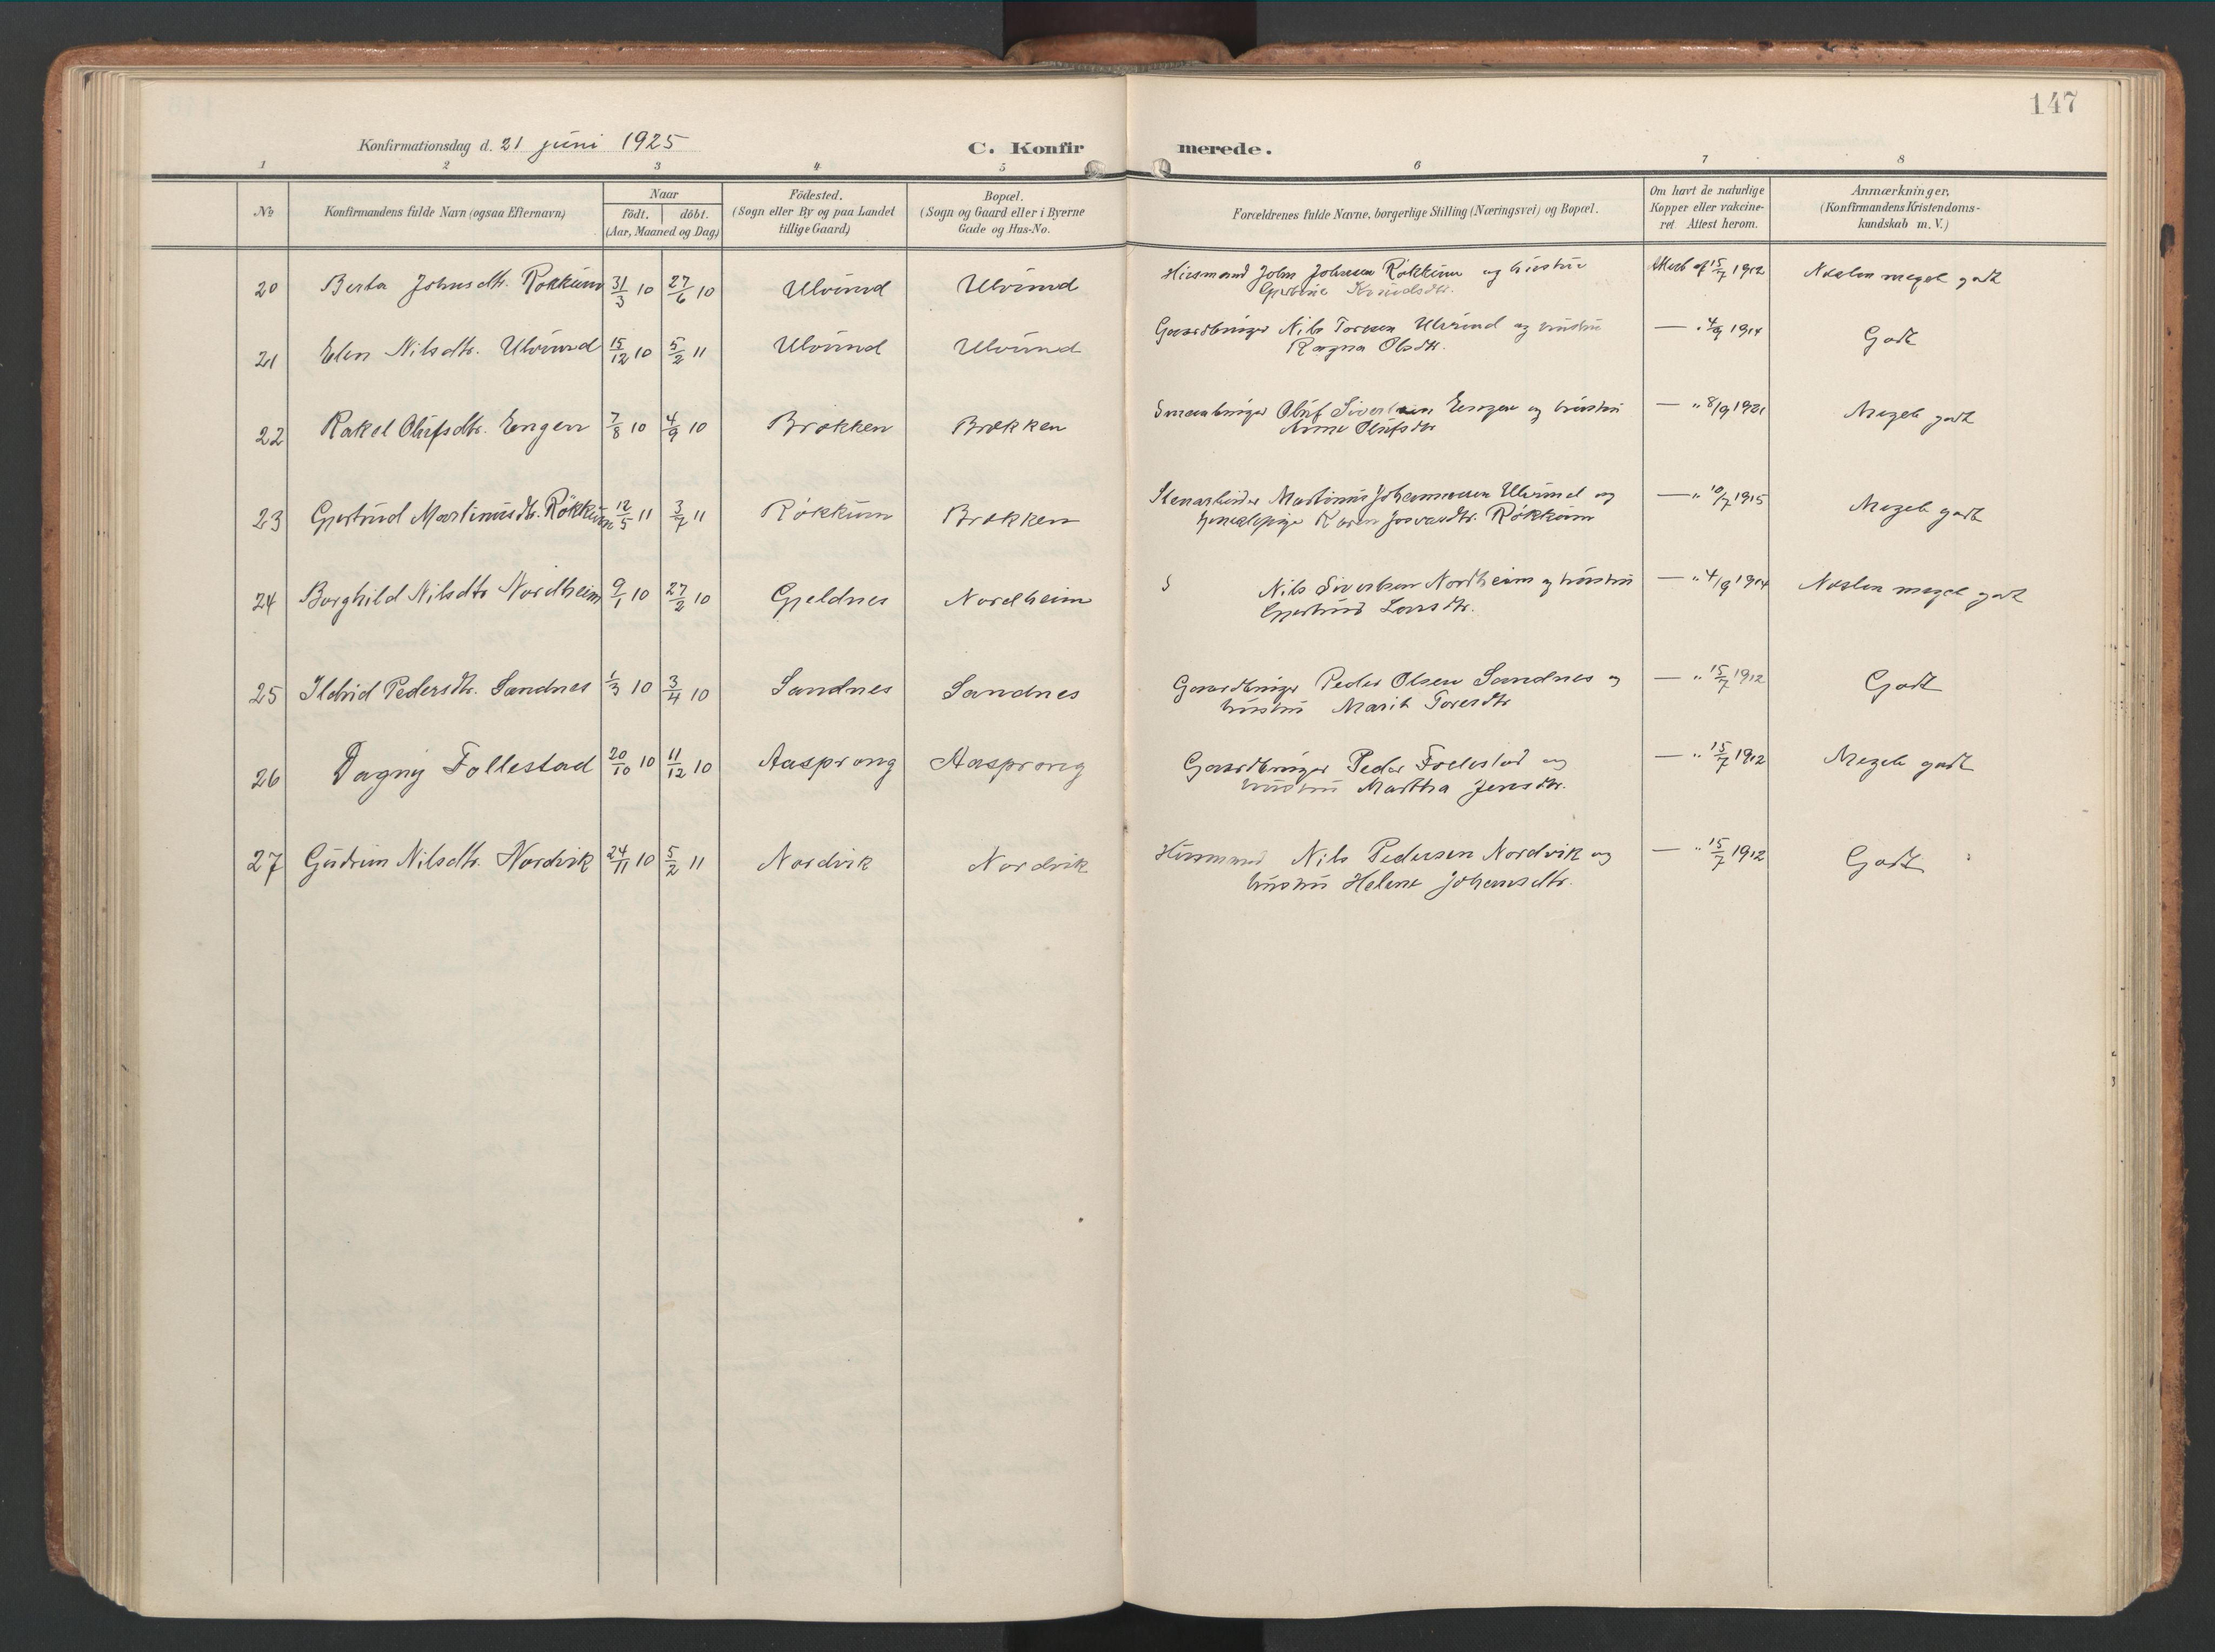 147
Konfirmationsdag d. 21 juni 1925
C. Konfirmerede.
1 2 3 4 5 6 7 8
No Konfirmandens fulde Navn (ogsaa Efternavn) Naar født. døbt. (Aar, Maaned og Dag) Födested. (Sogn eller By og paa Landet tillige Gaard) Bopæl. (Sogn og Gaard eller i Byerne Gade og Hus-No. Forældrenes fulde Navne, borgerlige Stilling (Næringsvei) og Bopæl. Om havt de naturlige Kopper eller vakcineret Attest herom. Anmærkninger, (Konfirmandens Kristendomskundskab m. V.)
20 Berta Johnsdtr. Røkkum 31/3 10 27/6 10 Ulvund Ulvund Husmand John Johnsen Røkkum og hustru Attest af 15/7 1912 Næsten meget godt
Gjertine Knudsdtr.
21 Elen Nilsdtr. Ulvund 15/12 10 5/2 11 Ulvund Ulvund Gaardbruger Nils Toresen Ulvund og hustru — " 4/9 1914 Godt
Ragna Olsdtr.
22 Rakel Olufsdtr. Engen 7/8 10 4/9 10 Brøkken Brøkken Oluf Sivertsen Engen og hustru — " 8/9 1921 Meget godt
Anne Olufsdtr
23 Gjertrud Martinusdtr. Røkkum 12/5 11 3/7 11 Røkkum Brøkken Stenarbeider Martinus Johannessen Ulvund og — " 10/7 1915 Meget godt
Karen Røkkum
24 Borghild Nilsdtr Nordheim 9/1 10 27/2 10 Gjeldnes Nordheim S Nils Sivertsen Nordheim og hustru — " 4/9 1914 Næsten meget godt
Gjertrud Larsdtr.
25 Ildrid Pedersdtr. Sandnes 1/3 10 3/4 10 Sandnes Sandnes Gaardbruger Peder Olsen Sandnes og — " 15/7 1912 Godt
hustru Marit Toresdtr
26 Dagny Follestad 20/10 10 11/12 10 Aasprong Aasprong Gaardbruger Peder Follestad og — " 15/7 1912 Meget godt
hustru Martha Jensdtr.
27 Gudrun Nilsdtr. Nordvik 24/11 10 5/2 11 Nordvik Nordvik Husmand Nils Pedersen Nordvik og — " 15/7 1912 Godt
hustru Helene Johansdtr.